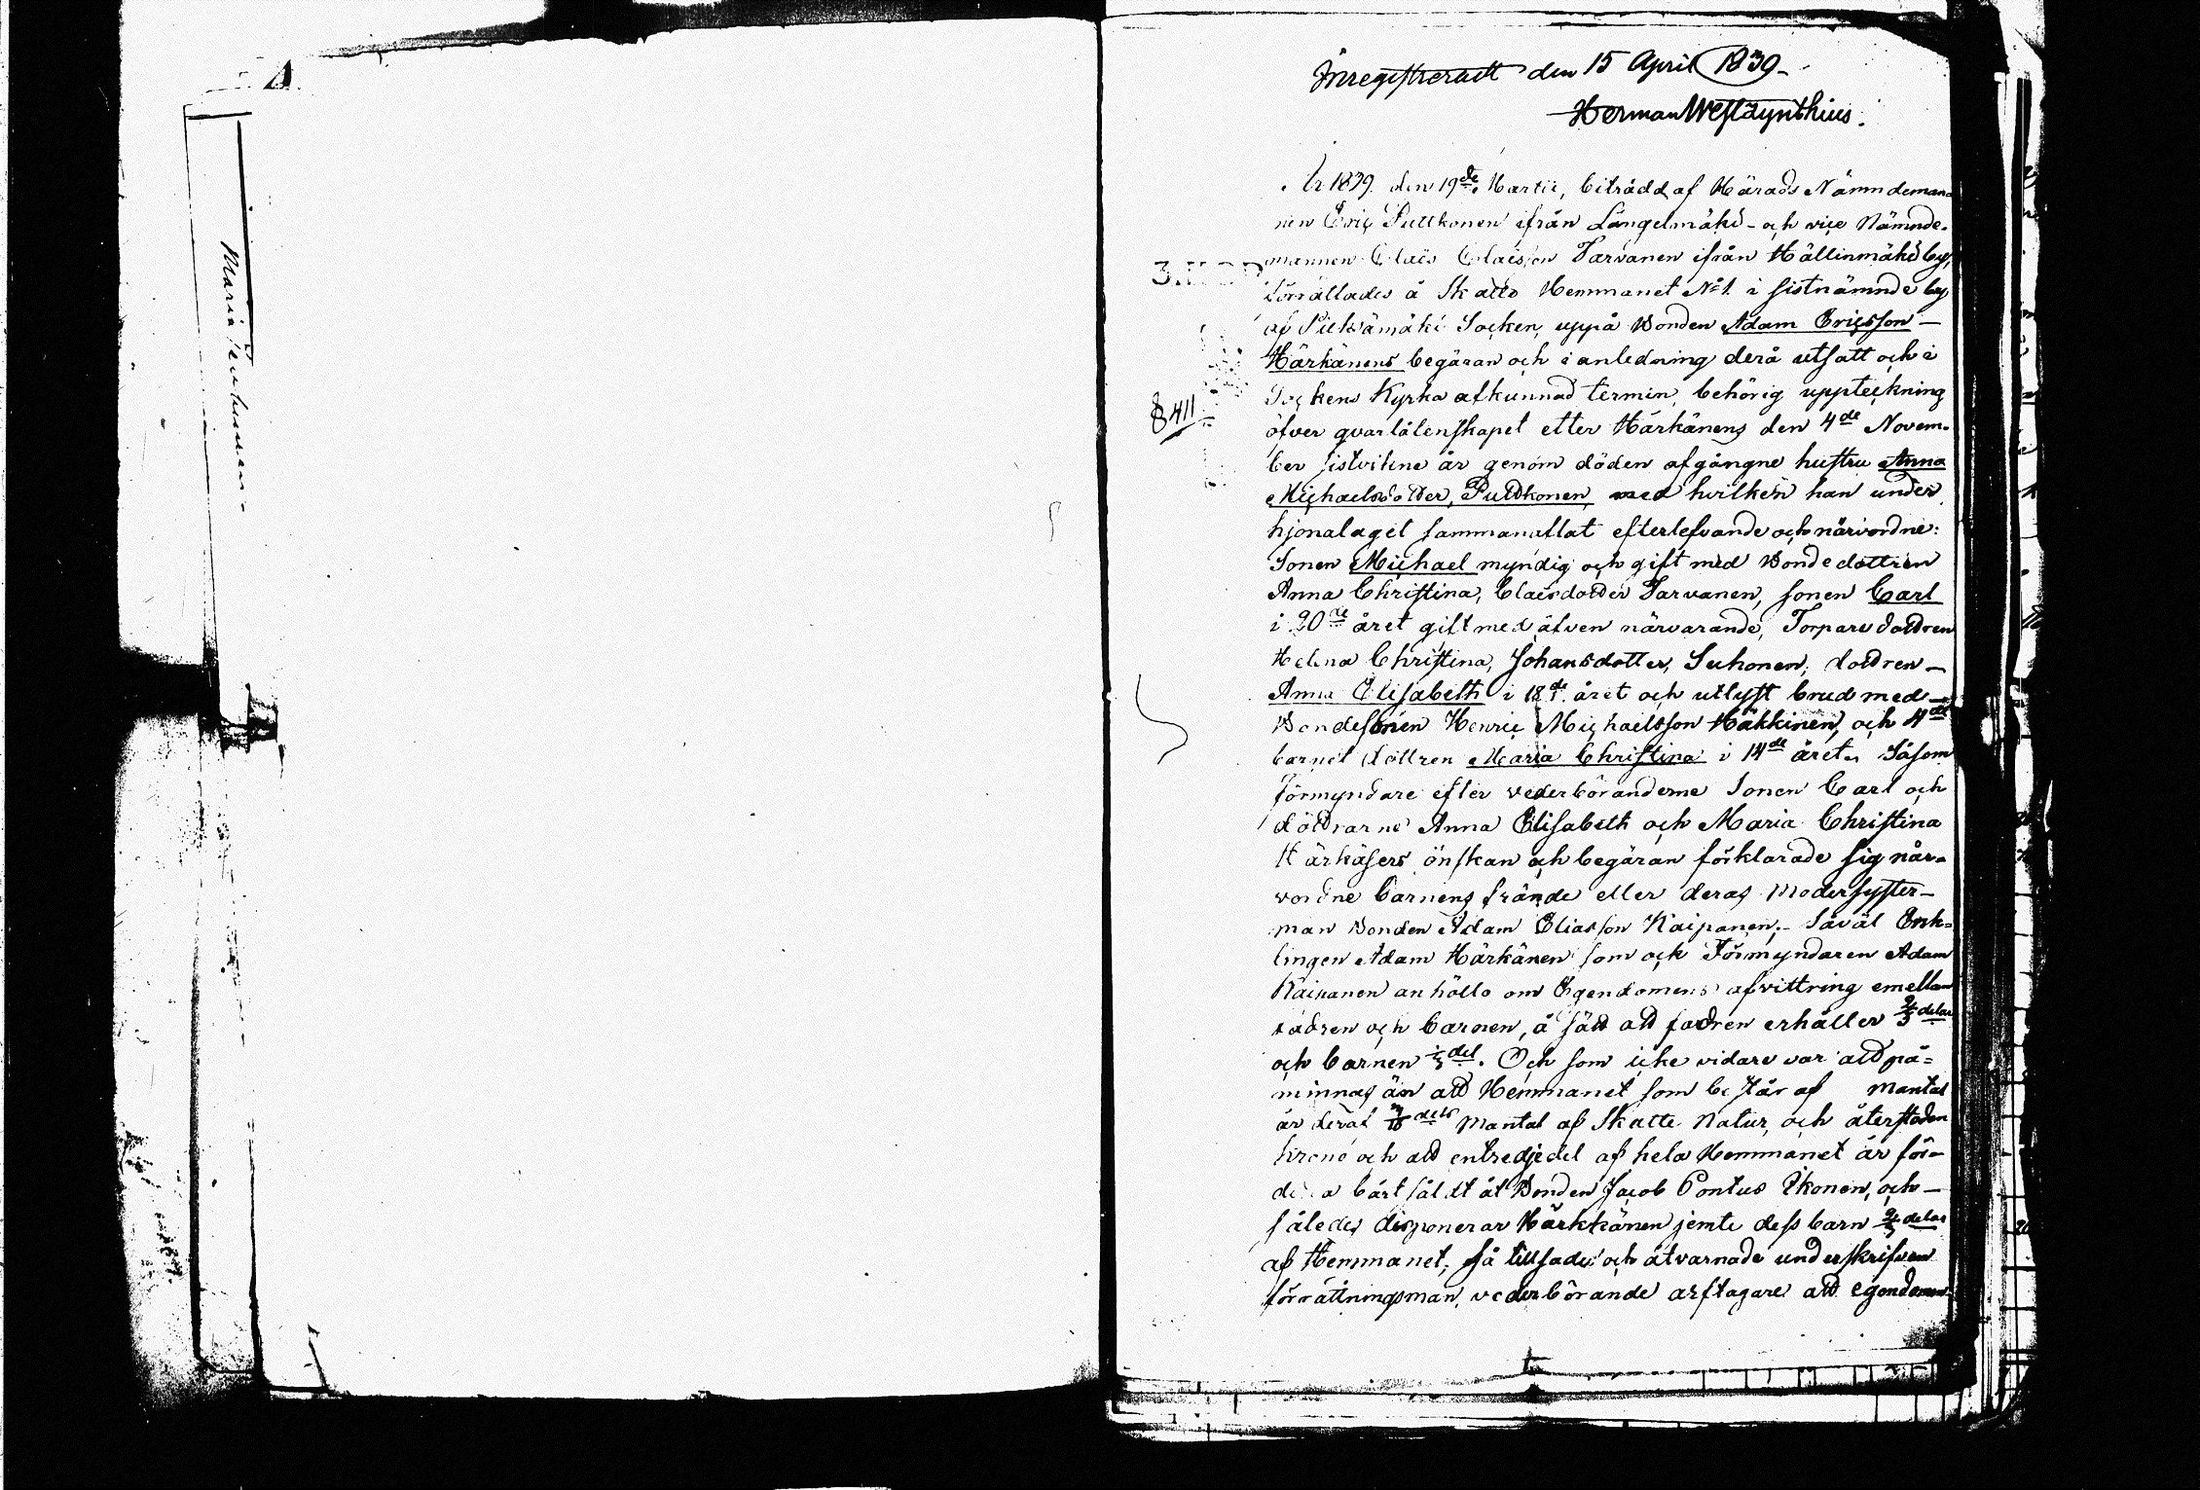 Inregistreradt den 15 April 1839.
Herman Westzynthius.
År 1839 den 19de Martii, biträdd af Härads Nämndeman-
nen Eric Pulkkonen ifrån Längelmäki - och vice Nämnde-
mannen Claës Claësson Tarvanen ifrån Hällinmäki by,
förrättades å Skatte Hemmanet No 1. i sistnämnde by
af Pieksämäki Socken, uppå Bonden Adam Ericsson
Härkänens begäran och i anledning derå utsatt och i
Sockens Kyrka afkunnad termin, behörig uppteckning
8411
öfver qvarlåtenskapet etter Härkänens den 4de Novem-
ber sistvikne år genom döden afgångne hustru Anna
Michaelsdotter, Pulkkonen, med hvilken han under
hjonalaget sammanaflat efterlefvande och närvordne:
Sonen Michael myndig och gift med Bondedottren
Anna Christina, Claësdotter Tarvanen, sonen Carl
i 20de året gift med äfven närvarande, Torparedottren
Helena Christina, Johansdotter, Suhonen, dottren
Anna Elisabeth i 18de året och utlyst brud med
Bondesonen Henric Michaelsson Häkkinen, och 4de
barnet dottren Maria Christina i 14de året. Såsom
Förmyndare efter vederböranderne Sonen Carl och
döttrarne Anna Elisabeth och Maria Christina
Härkäsers önskan och begäran förklarade sig när-
vordne barnens frände eller deras Modersyster-
man Bonden Adam Eliasson Kaipanen,- Såväl Enk-
lingen Adam Härkänen som ock Förmyndaren Adam
Kaipanen anhöllo om Egendomens afvittring emellan
fadren och barnen, å sätt att fadren erhåller 2/3 delar
och barnen 1/3 del. Och som icke vidare var att på-
minnas än att Hemmanet som består af Mantal
är deraf dels Mantal af Skatte Natur, och återstoden
krono och att entredjedel af hela Hemmanet är för-
detta bårt såldt åt Bonden Jacob Pontus Ikonen, och
således disponerar Härkkänen jemte dess barn 2/3 delar
af Hemmanet, så tillsades och åtvarnade underskrifven
förrättningsman, vederbörande arftagare att egendomen